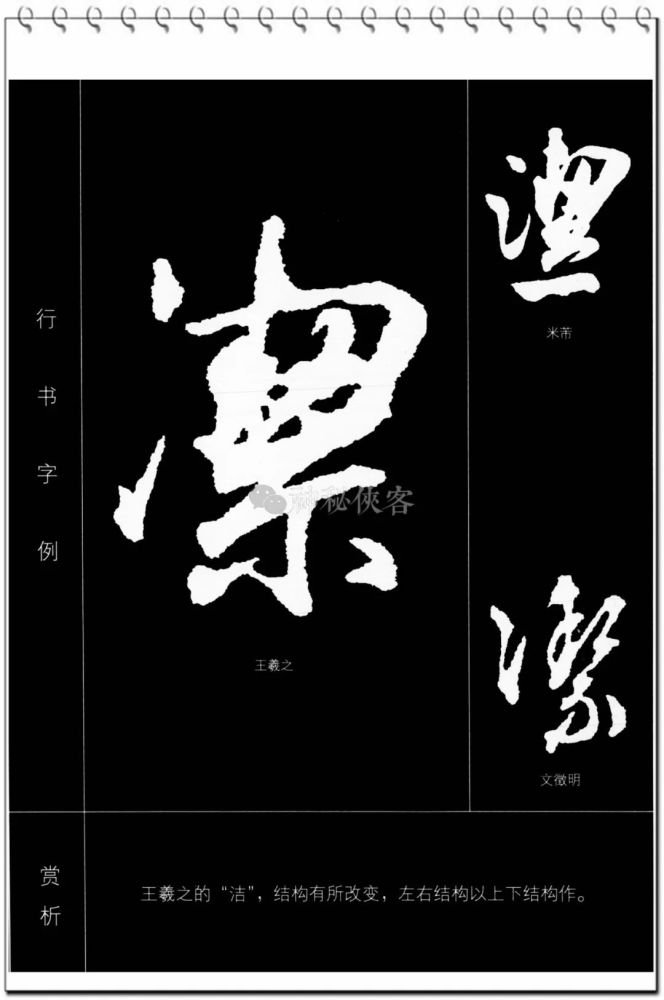 行书字例
潔
神秘俠客
王羲之
潔
米芾
潔
文徵明
赏析
王羲之的“洁”，结构有所改变，左右结构以上下结构作。